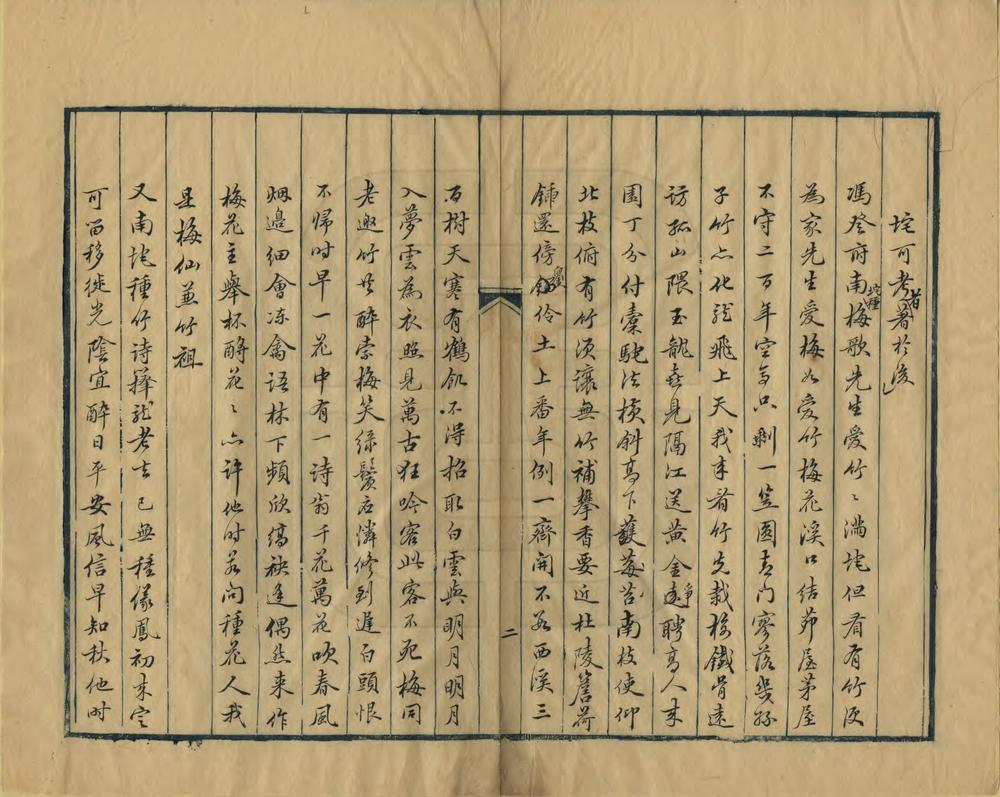 垞可考者署於後
馮登府南垞種梅歌先生愛竹〻滿垞但看有竹便
為家先生愛梅如愛竹梅花溪口結茆屋茅屋
不守二百年空亭只剩一笠圓青門寥落幾孫
子竹亦化龍飛上天我来看竹先栽梅鐵骨遠
訪孤山隈玉龍喜見隔江送黄金争遠聘高人来
園丁分付橐駝法横斜高下護莓苔南枝使仰
北枝俯有竹須讓無竹補攀香要近杜陵簷荷
鍤還傍劉伶土上番年例一齊開不若西溪三
百樹天寒有鶴飢不得招取白雲與明月明月
入夢雲為衣照見萬古狂吟客此客不死梅同
老邀竹共醉索梅笑綠鬢君憐修到遲白頭恨
不歸時早一花中有一詩翁千花萬花吹春風
烟邊細會冻禽語林下頻欣縞袂逢偶然来作
梅花主舉杯酹花〻亦許他時若問種花人我
是梅仙兼竹祖
又南垞種竹詩籜龍老去已無種儀鳳初来定
可留移徙光陰宜醉日平安風信早知秋他時
二